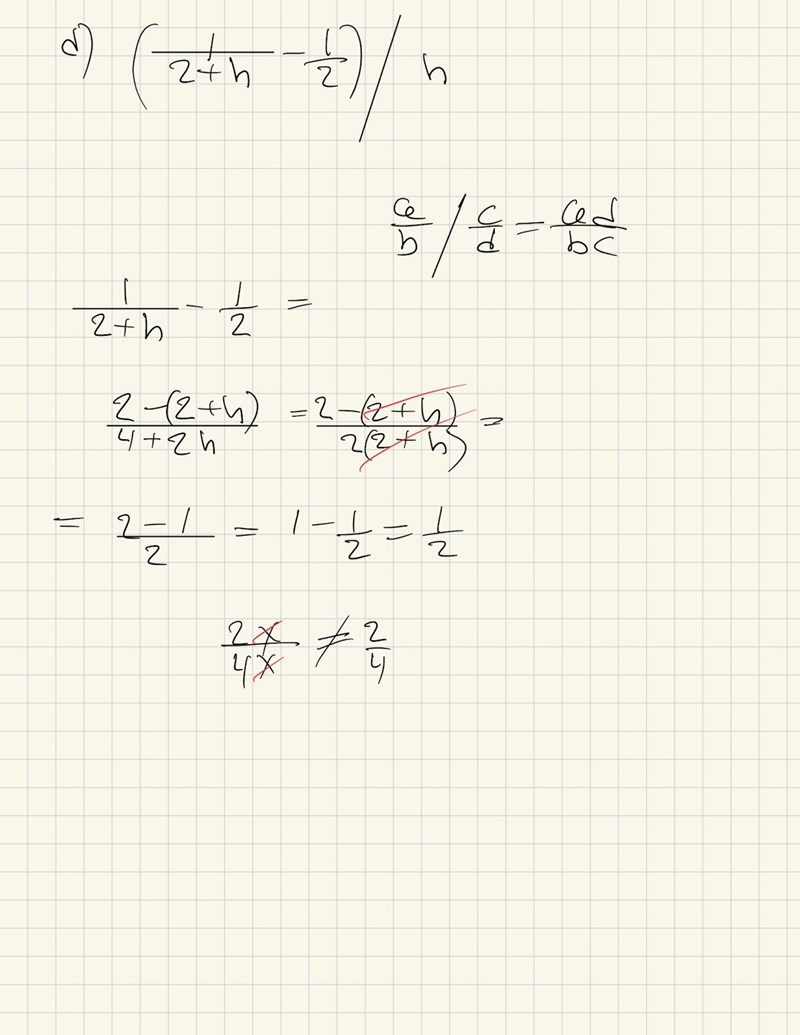 d) (1/(2+h) - 1/2) / h
a/b / c/d = ad/bc
1/(2+h) - 1/2 =
(2-(2+h))/(4+2h) = (2-(2+h))/(2(2+h)) =
= (2-1)/2 = 1 - 1/2 = 1/2
2x/4x ≠ 2/4